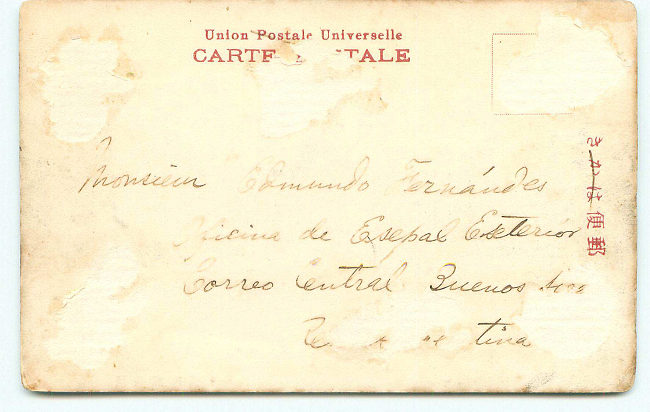 Union Postale Universelle
CARTE TALE
Monsieur Edmundo Fernándes
Oficina de Esepal Exterior
Correo Central Buenos Aires
tina
郵便はかき